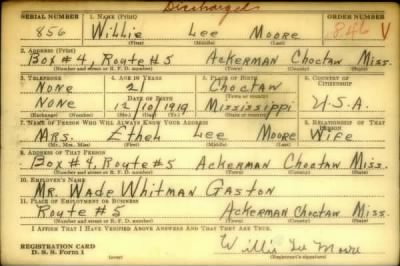 Discharged
SERIAL NUMBER 1. NAME (Print) ORDER NUMBER
856 Willie Lee Moore 846 V
(First) (Middle) (Last)
2. ADDRESS (Print)
Box #4, Route #5 Ackerman Choctaw Miss.
(Number and street or R. F. D. number) (Town) (County) (State)
3. TELEPHONE 4. AGE IN YEARS 5. PLACE OF BIRTH 6. COUNTRY OF CITIZENSHIP
None 21 Choctaw
DATE OF BIRTH (Town or county)
None 12/10/1919 Mississippi U.S.A.
(Exchange) (Number) (Mo.) (Day) (Yr.) (State or country)
7. NAME OF PERSON WHO WILL ALWAYS KNOW YOUR ADDRESS 8. RELATIONSHIP OF THAT PERSON
Mrs. Ethel Lee Moore Wife
(Mr., Mrs., Miss) (First) (Middle) (Last)
9. ADDRESS OF THAT PERSON
Box #4, Route #5 Ackerman Choctaw Miss.
(Number and street or R. F. D. number) (Town) (County) (State)
10. EMPLOYER'S NAME
Mr. Wade Whitman Gaston
11. PLACE OF EMPLOYMENT OR BUSINESS
Route #5 Ackerman Choctaw Miss.
(Number and street or R. F. D. number) (Town) (County) (State)
I AFFIRM THAT I HAVE VERIFIED ABOVE ANSWERS AND THAT THEY ARE TRUE.
REGISTRATION CARD Willie Lee Moore
D. S. S. Form 1 (Registrant's signature)